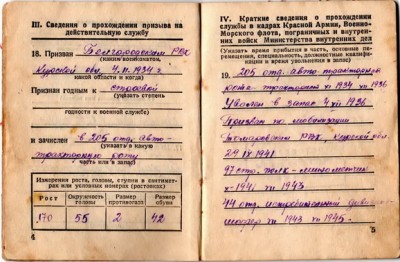 III. Сведения о прохождении призыва на
действительную службу
18. Призван Белгородским РВК
каким военкоматом,
Курской обл. 1934 г.
какой области и когда)
Признан годным к строевой
(указать степень
годности к военной службе)
и зачислен в 205 отд. авто-
(указать в какую
роту
часть или в запас)
Измерения роста, головы, ступни в сантимет-
рах или условных номерах (ростовках)
Рост Окружность головы Размер противогаза Размер обуви
170 55 2 42
4
IV. Краткие сведения о прохождении
службы в кадрах Красной Армии, Военно-
Морского флота, пограничных и внутрен-
них войск Министерства внутренних дел
(Указать время прибытия в часть, основные пере-
мещения, специальность, должностные квалифика-
ции и время увольнения в запас)
19. 205 отд. авто
рота 1934 1936
Уволен в запас 1936
Призван по мобилизации
Томаровским РВК, Курской обл.
24 IX 1941
97 стр. полк - минометчик
X-1941 1943
44 отд. истребительный
шофер 1943 1945 -
5